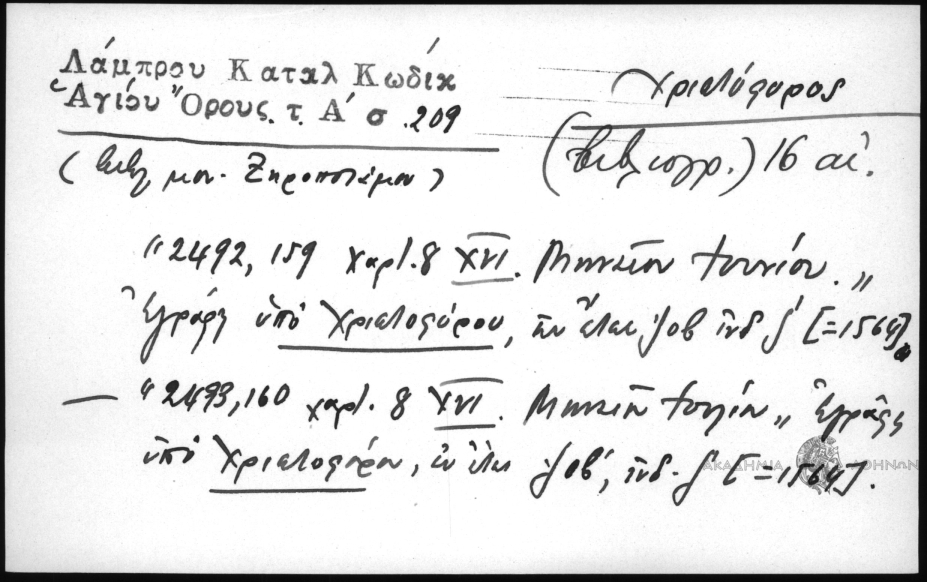 Λάμπρου Καταλ Κωδίκ
Ἁγίου Ὄρους. τ. Α′ σ. 209
Χριστόφορος
(βιβλιογρ.) 16 αἰ.
(βιβλ μον. Ξηροποτάμου)
"2492, 159 χαρτ. 8 XVI. Μηναῖον Ἰουνίου.„
Ἐγράφη ὑπὸ Χριστοφόρου, ἐν ἔτει ͵ζοβ ἰνδ ζ′ [=1564]„
— "2493, 160 χαρτ. 8 XVI. Μηναῖον Ἰουλίου„ Ἐγράφη
ὑπὸ Χριστοφόρου, ἐν ἔτει ͵ζοβ′, ἰνδ. ζ′ [=1564].
ΑΚΑΔΗΜΙΑ ΑΘΗΝΩΝ